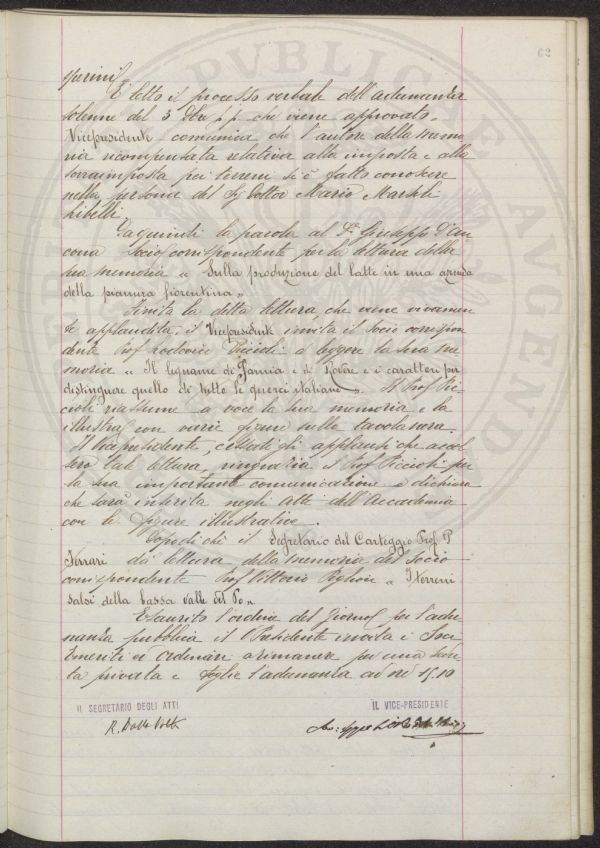 62
sperini
È letto il processo verbale dell'adunanza
solenne del 3 Xbre p.p. che viene approvato.
Vicepresidente comunica che l'autore della memo
ria ricompensata relativa alla imposta e alla
sovraimposta pei terreni si è fatto conoscere
nella persona del Sig Dottor Mario Marsili
Libelli.
Da quindi la parola al Dr. Giuseppe D'An
cona Socio corrispondente per la lettura della
sua memoria "Sulla produzione del latte in una azienda
della pianura fiorentina"
Finita la detta lettura, che viene vivamen
te applaudita, il Vicepresidente invita il socio corrispon
dente Prof Lodovico Piccioli a leggere la sua me
moria "Il legname di Farnia e di Rovere e i caratteri per
distinguere quello di tutte le querci italiane". Il Prof Pic
cioli riassume a voce la sua memoria e la
illustra con varie figure nella tavola nera.
Il Vicepresidente, cessati gli applausi che accol
sero tale lettura, ringrazia il Prof Piccioli per
la sua importante comunicazione e dichiara
che sarà inserita negli Atti dell'Accademia
con le figure illustrative.
Dopodiché il Segretario del Carteggio Prof. P.
Ferrari dà lettura della memoria del Socio
corrispondente Prof Vittorio Peglion "I terreni
salsi della bassa valle del Po".
Esaurito l'ordine del Giorno per l'adu
nanza pubblica il Presidente invita i Soci
Emeriti ed Ordinari a rimanere per una sedu
ta privata e toglie l'adunanza ad ore 15.10
IL SEGRETARIO DEGLI ATTI
IL VICE-PRESIDENTE
R. Dalla Volta
PVBLICAE
AVGENDAE